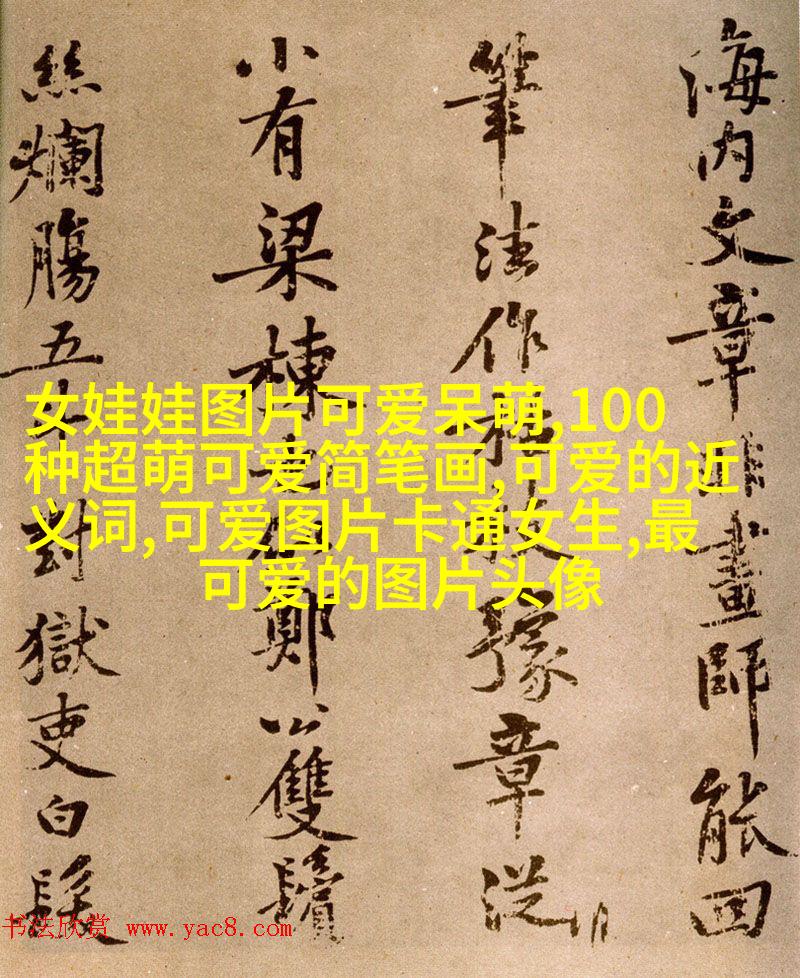 海内文章非畫師能回
筆法作枝豫章從
小有梁棟鄭公雙鬢
絲爛腸五斗對獄吏白髮
女娃娃图片可爱呆萌,100
种超萌可爱简笔画,可爱的近
义词,可爱图片卡通女生,最
可爱的图片头像
书法欣赏 www.yac8.com